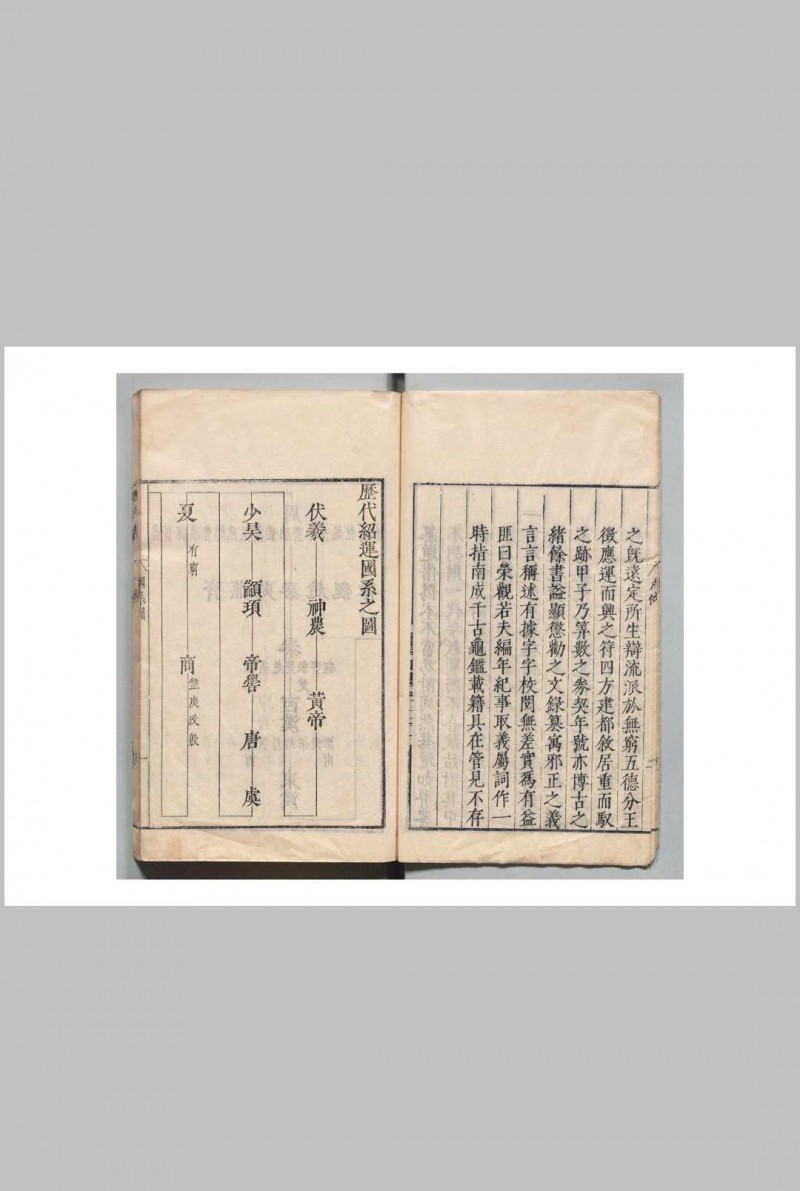 之旣遠定所生辯流派於無窮五德分王
徵應運而興之符四方建都敘居重而馭
之跡甲子乃筭數之叅契年號亦博古之
緒餘書謚顯懲勸之文錄篡寓邪正之義
言言稱述有據字字校閱無差實爲有益
匪曰榮觀若夫編年紀事取義屬詞作一
時指南成千古龜鑑載籍具在管見不存
二
歷代紹運國系之圖
伏羲 神農 黃帝
少昊 顓頊 帝嚳 唐 虞
夏 有窮 商 盤庚改殷
一